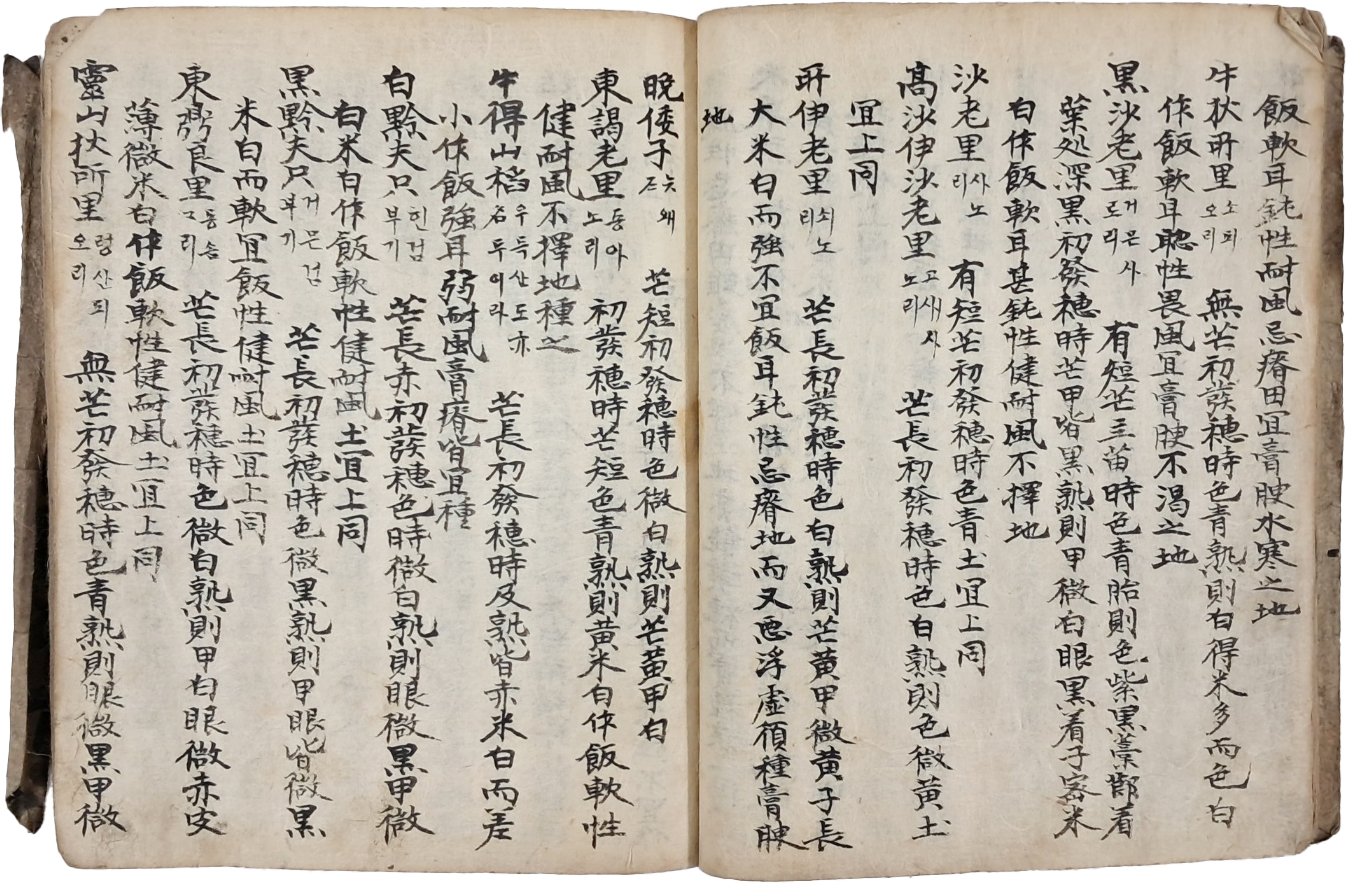 飯軟耳鈍性耐風忌瘠田宜膏腴水寒之地
牛狄所里 소되오리 無芒初發穗時色青熟則白得米多而色白
作飯軟耳聡性畏風宜膏腴不渴之地
黑沙老里 거믄사로리 有短芒立苗時色青胎則色紫黑藁鄣着
葉処深黑初發穗時芒甲皆黑熟則甲微白眼黑着子密米
白作飯軟耳甚鈍性健耐風不擇地
沙老里 사노리 有短芒初發穗時色青土宜上同
高沙伊沙老里 고새사노리 芒長初發穗時色白熟則色微黄土
宜上同
所伊老里 쇠노리 芒長初發穗時色白熟則芒黄甲微黄子長
大米白而強不宜飯耳鈍性忌瘠地而又惡浮虛湏種膏腴
地
晩倭子 왜 芒短初發穗時色微白熟則芒黄甲白
東謁老里 동아노리 初發穗時芒短色青熟則黄米白作飯軟性
健耐風不擇地種之
牛得山稻 우득산도亦名두어라 芒長初發穗時及熟皆赤米白而差
小作飯強耳弱耐風膏瘠皆宜種
白黔夫只 힌검부기 芒長赤初發穗色時微白熟則眼微黑甲微
白米白作飯軟性健耐風土宜上同
黑黔夫只 거믄검부기 芒長初發穗時色微黑熟則甲眼皆微黑
米白而軟宜飯性健耐風土宜上同
東鬻良里 동솜ᄀ리 芒長初發穗時色微白熟則甲白眼微赤皮
薄微米白作飯軟性健耐風土宜上同
靈山狄所里 령산되오리 無芒初發穗時色青熟則眼微黑甲微